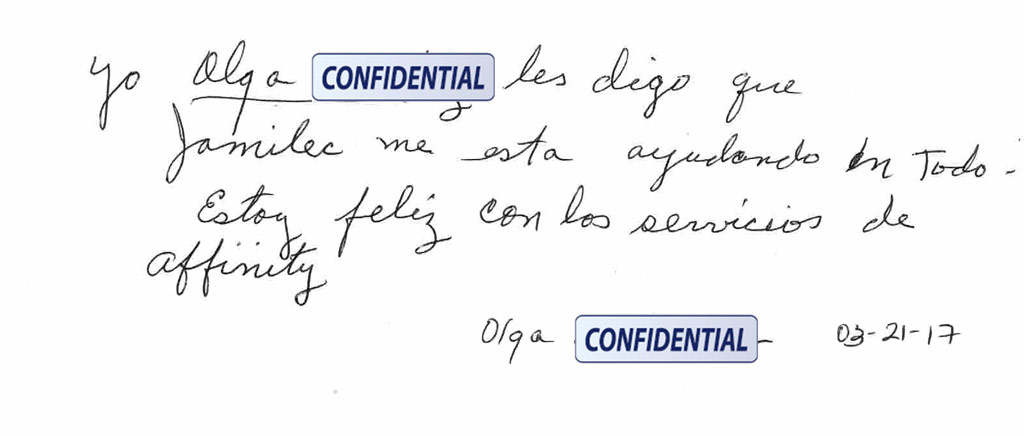 yo Olga CONFIDENTIAL les digo que
Jamilec me esta ayudando en Todo.
Estoy feliz con los servicios de
affinity
Olga CONFIDENTIAL 03-21-17